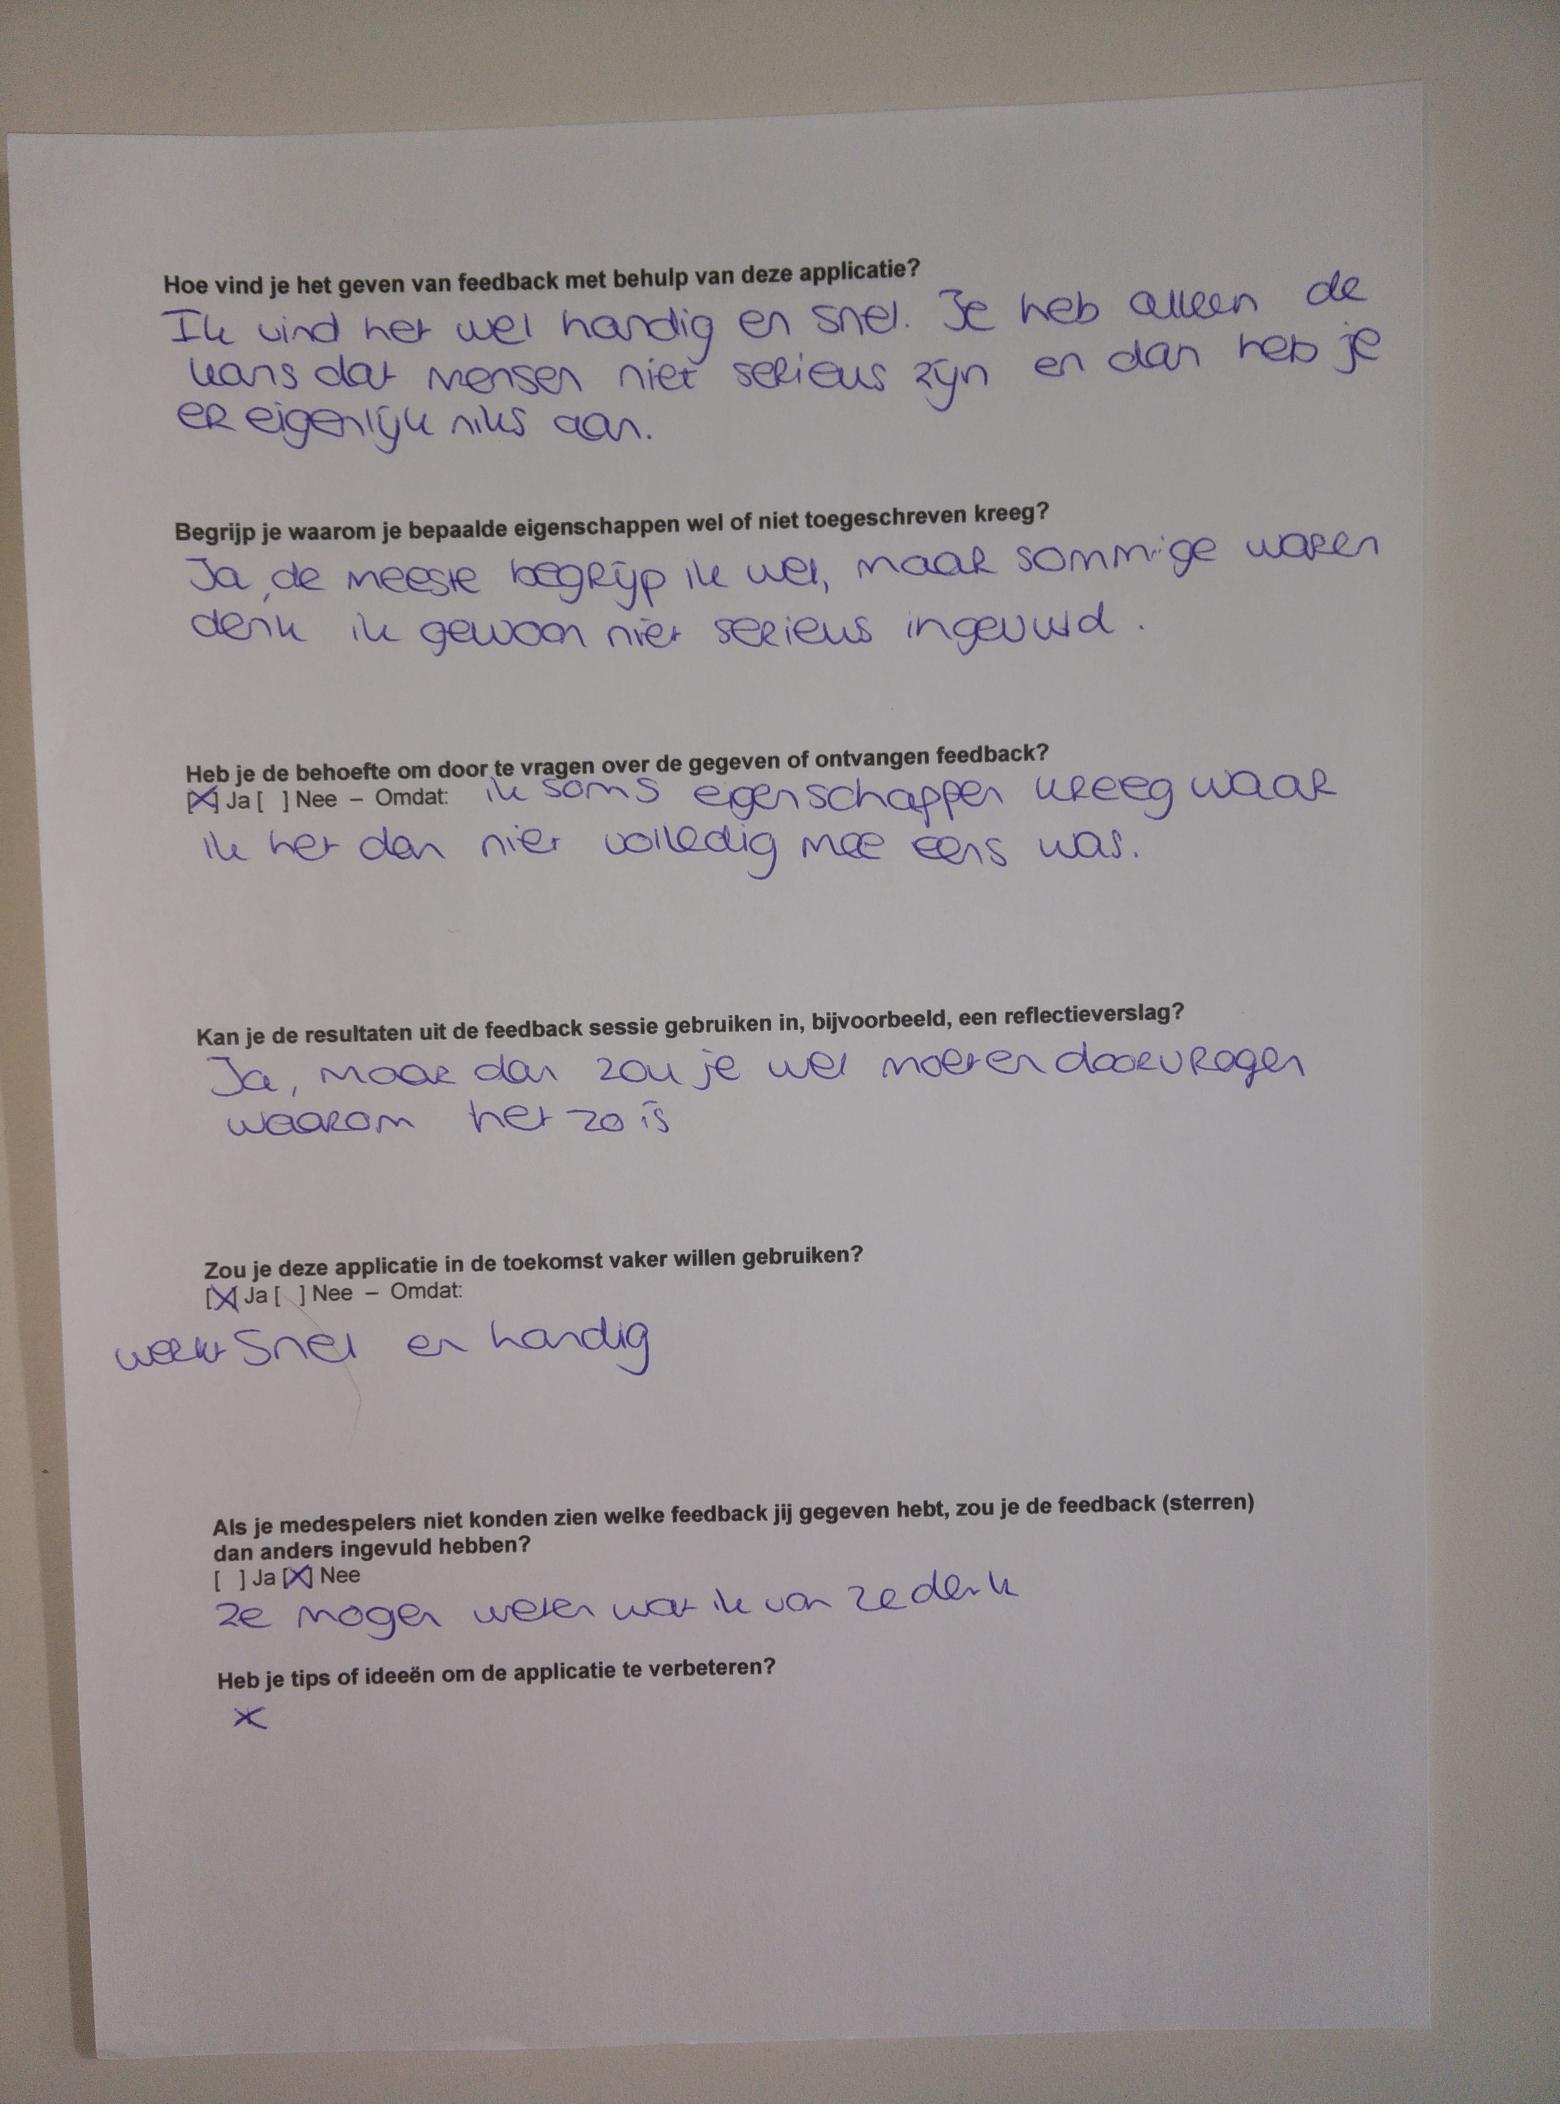 Hoe vind je het geven van feedback met behulp van deze applicatie?
Ik vind het wel handig en snel. Je heb alleen de
kans dat mensen niet serieus zijn en dan heb je
er eigenlijk niks aan.
Begrijp je waarom je bepaalde eigenschappen wel of niet toegeschreven kreeg?
Ja, de meeste begrijp ik wel, maar sommige waren
denk ik gewoon niet serieus ingevuld.
Heb je de behoefte om door te vragen over de gegeven of ontvangen feedback?
[X] Ja [ ] Nee – Omdat: ik soms eigenschappen kreeg waar
ik het dan niet volledig mee eens was.
Kan je de resultaten uit de feedback sessie gebruiken in, bijvoorbeeld, een reflectieverslag?
Ja, maar dan zou je wel moeten doorvragen
waarom het zo is
Zou je deze applicatie in de toekomst vaker willen gebruiken?
[X] Ja [ ] Nee – Omdat:
werkt snel en handig
Als je medespelers niet konden zien welke feedback jij gegeven hebt, zou je de feedback (sterren)
dan anders ingevuld hebben?
[ ] Ja [X] Nee
ze mogen weten wat ik van ze denk
Heb je tips of ideeën om de applicatie te verbeteren?
X